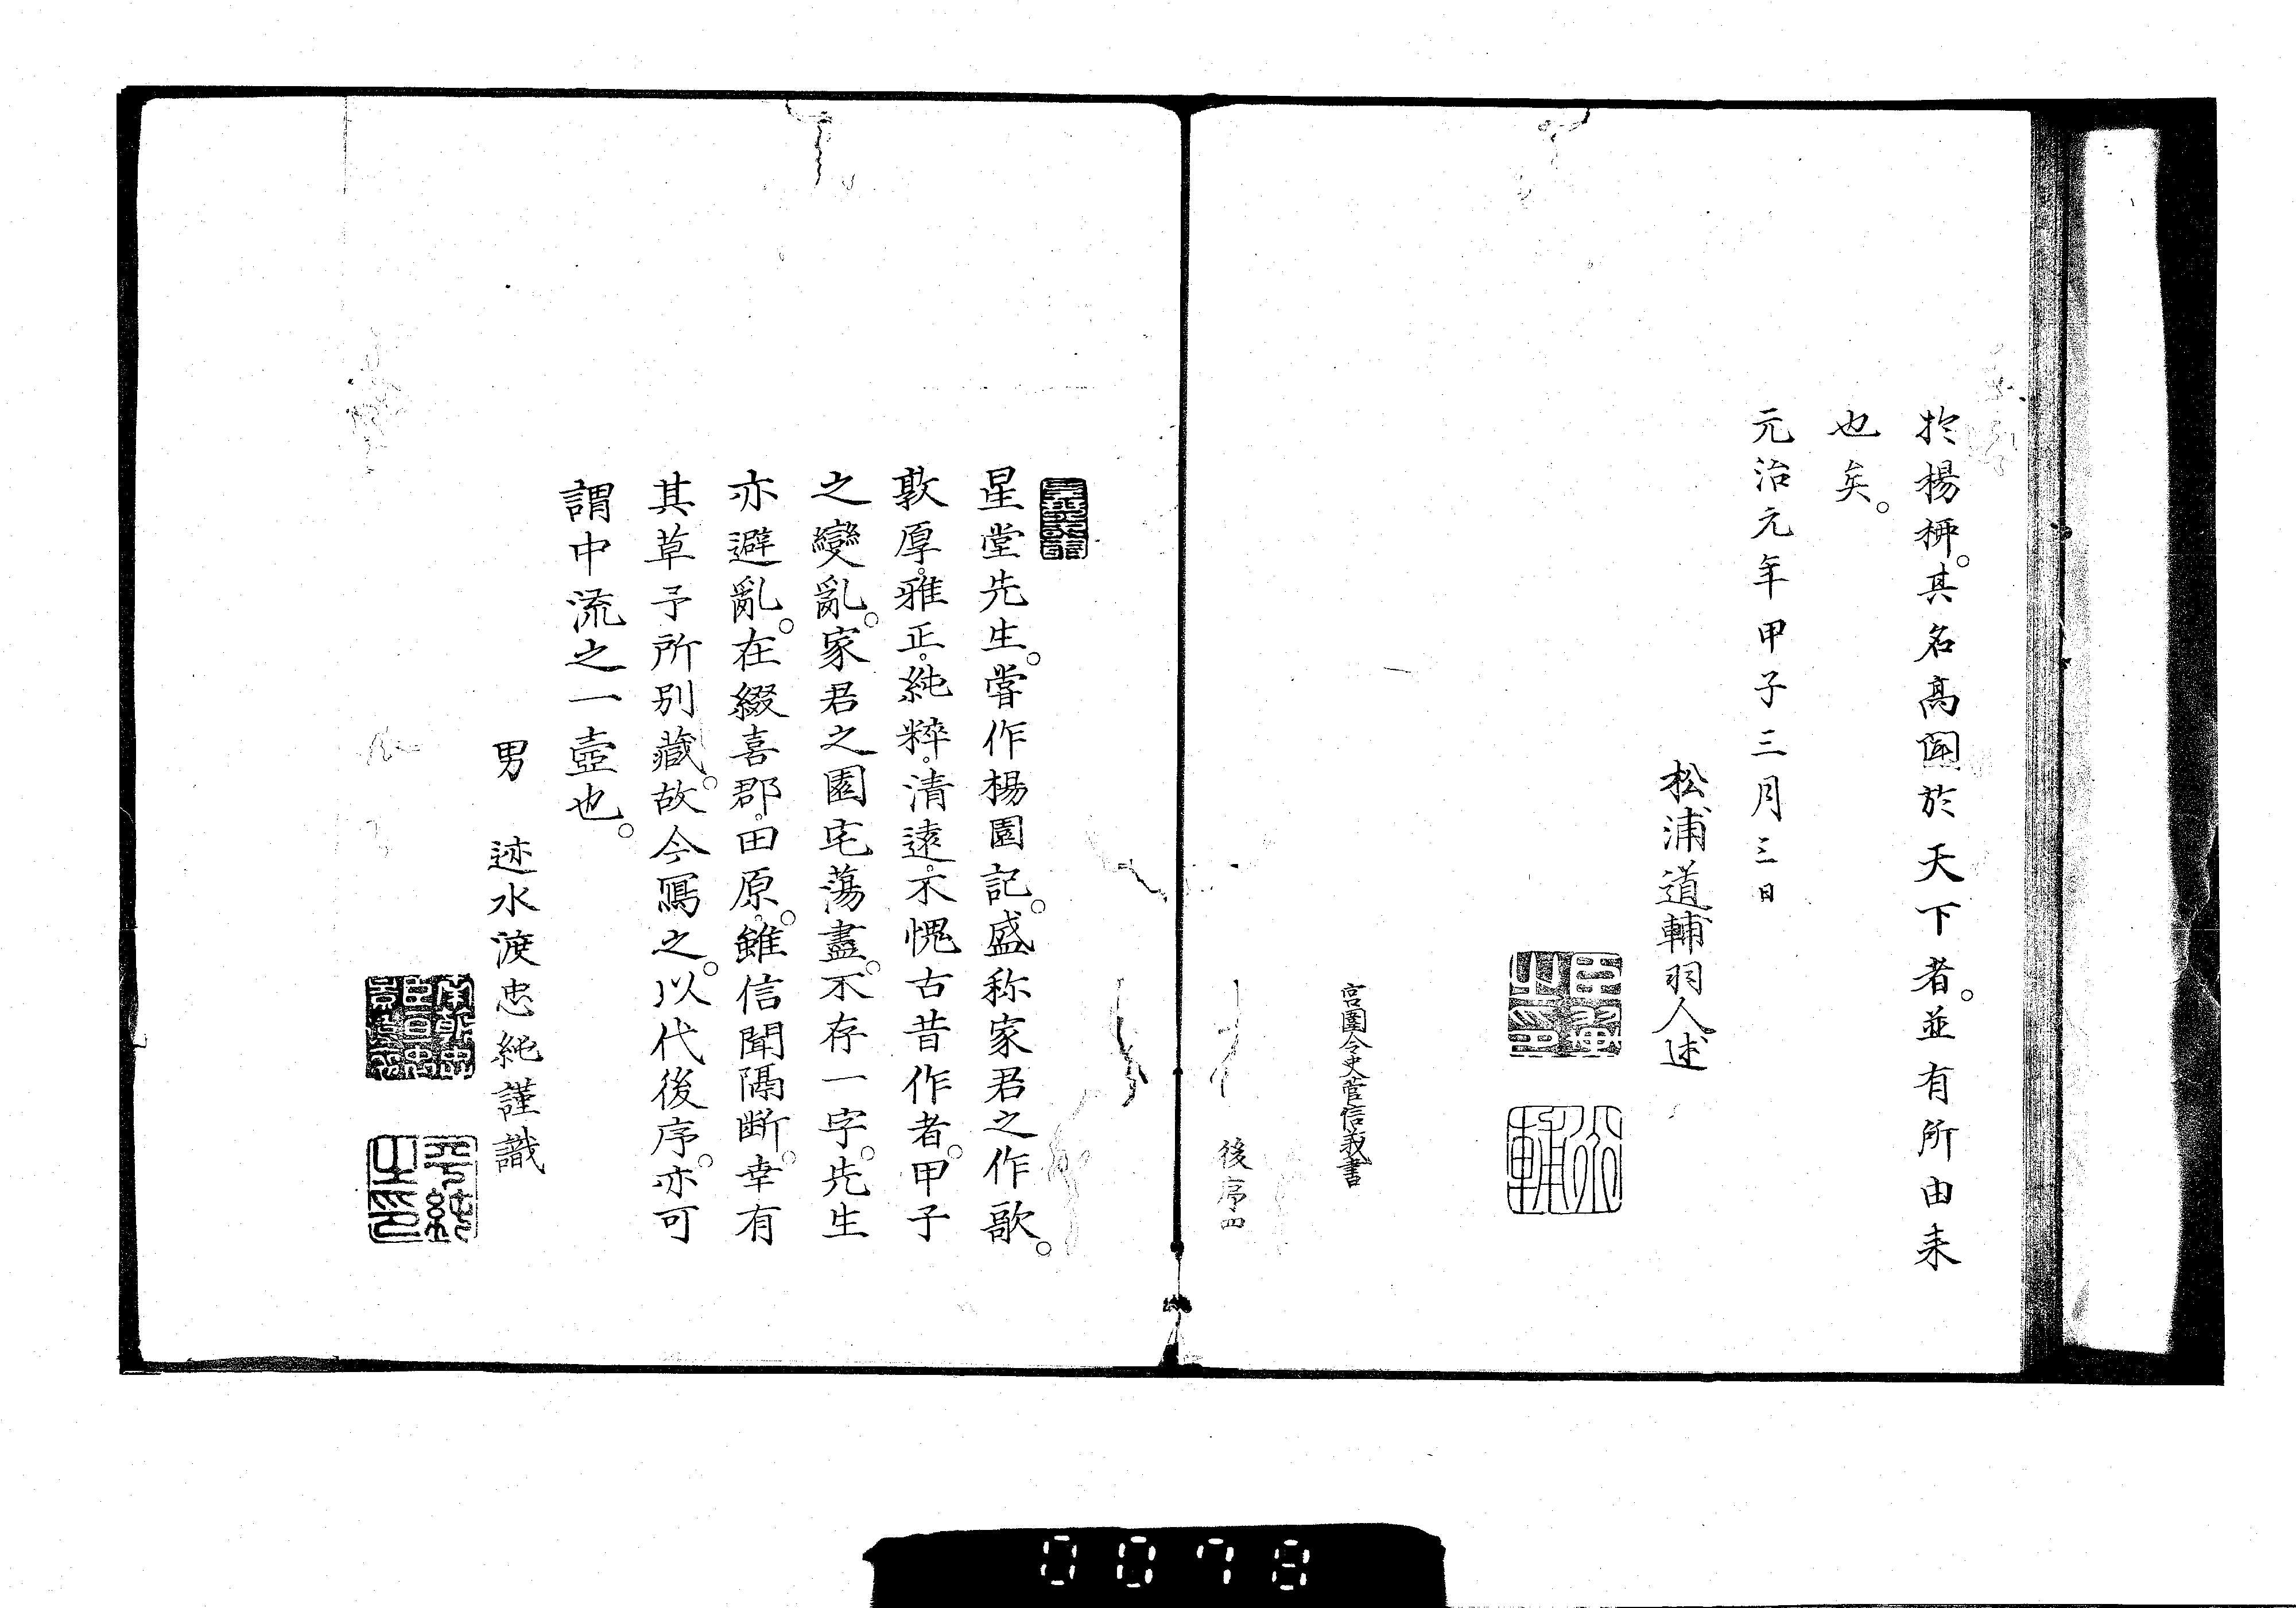 於楊栁。其名高聞於天下者。並有所由来
也矣。
元治元年甲子三月三日
松浦道輔羽人述
宮圍令史菅信義書
後序四
星堂先生。嘗作楊園記。盛称家君之作歌。
敦厚。雅正。純粹。清遠。不愧古昔作者。甲子
之變亂。家君之園宅蕩盡。不存一字。先生
亦避亂。在綴喜郡。田原。雖信聞隔断。幸有
其草予所別藏。故今寫之。以代後序。亦可
謂中流之一壺也。
男 迹水渡忠純謹識
平純之印
0078